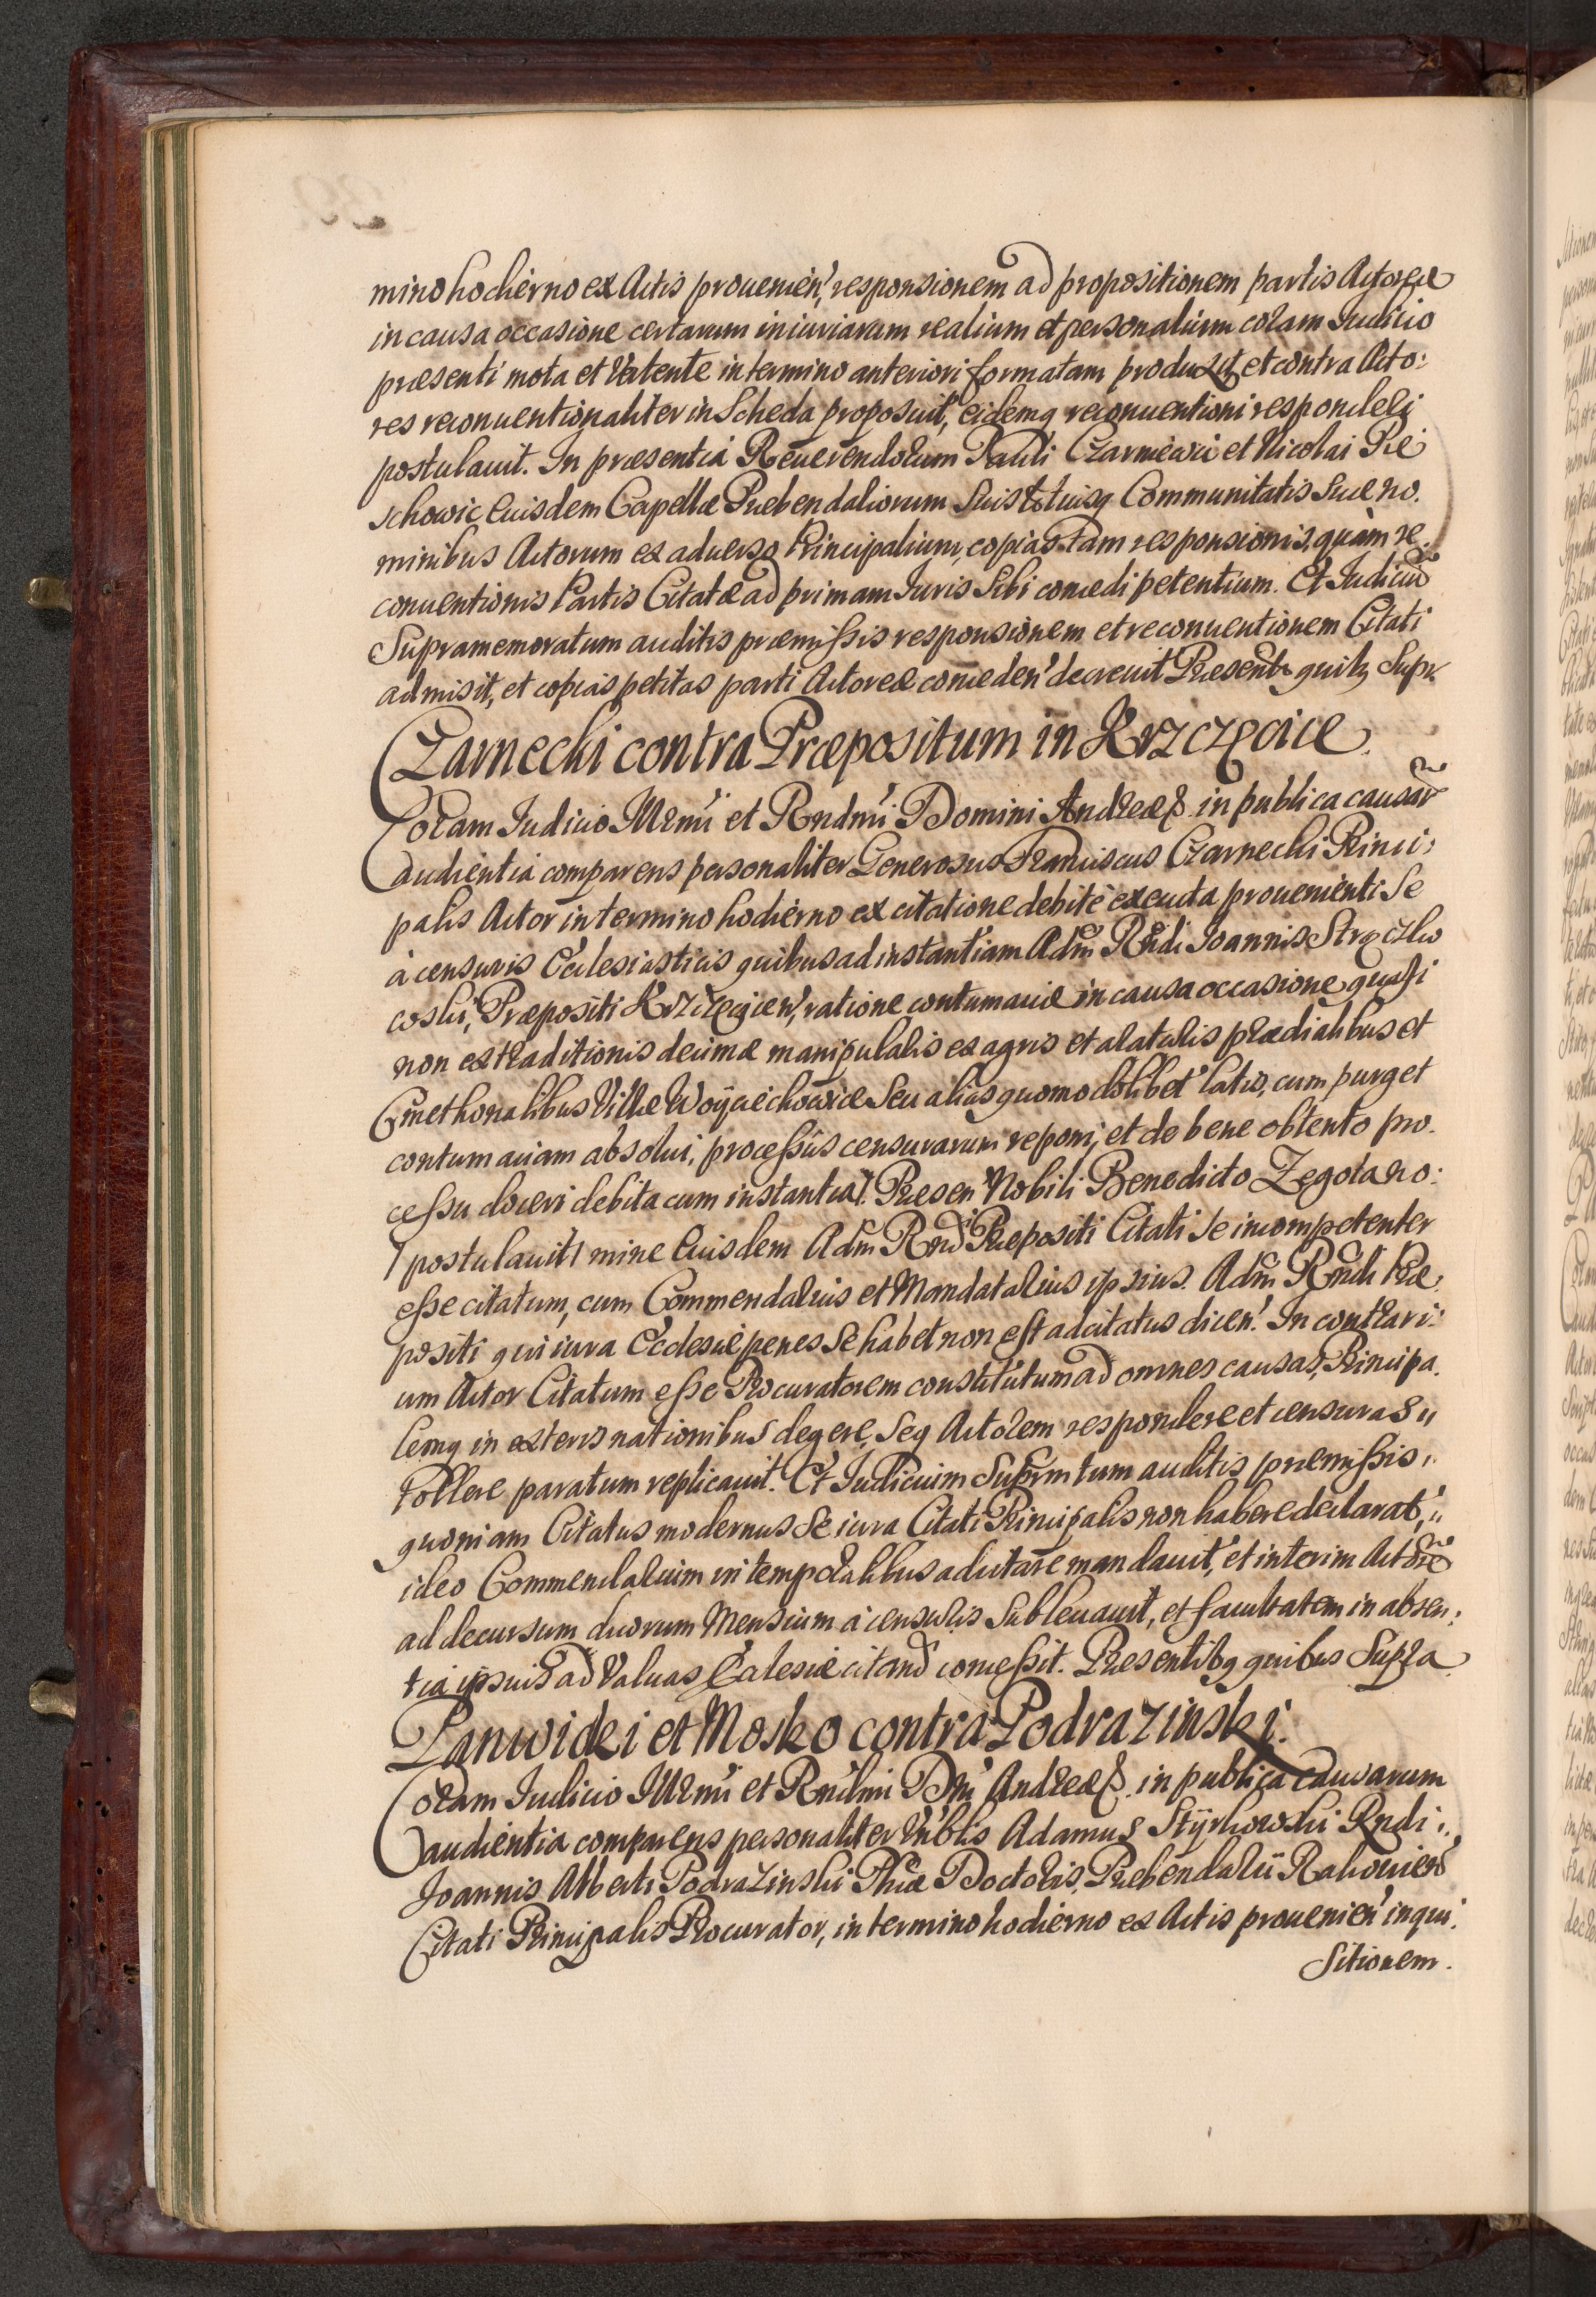 mino hodierno ex Actis prouenien', responsionem ad propositionem partis Actoreæ
in causa occasione certarum iniuriarum realium et personalium coram Iudicio
præsenti mota et Vertente in termino anteriori formatam produxit, et contra Acto:
res reconuentionaliter in Scheda proposuit, eidemq reconuentioni responderi
postulauit. In præsentia Reuerendorum Pauli Czarniewicz et Nicolai Pie
schowic Euisdem Capellæ Præbendariorum Suis totiusq Communitatis Suæ no.
minibus Actorum ex aduerso Principalium, copias tam responsionis, quàm re.
conuentionis Partis Citatæ ad primam Iuris Sibi concedi petentium. Et Iudiciũ
Supramemoratum auditis præmissis responsionem et reconuentionem Citati
admisit, et copias petitas parti Actoreæ conceden' decreuit Præsentb quib, Supr.
Czarnecki contra Præpositum in Krzczęcice.
Coram Iudicio Illrmi et Rndmi Domini Andreæ &. in publica causar
audientia comparens personaliter Generosus Franciscus Czarnecki Princi:
palis Actor in termino hodierno ex citatione debitè executa prouenienti Se
à censuris Ecclesiasticis quibus ad instantiam Adm Rndi Ioannis Stręczko
coski, Præpositi Krzczęcicen', ratione contumaciæ in causa occasione quasi
non extraditionis decimæ manipularis ex agris et araturis prædialibus et
Cmethonalibus Villæ Woyciechowice Seu alias quomodolibet latis, cum purget
contumaciam absolui, processus censurarum reponi, et de bene obtento pro.
cessu doceri debita cum instantia/. Præsen' Nobili Benedicto Zegota no:
/ postulauit / mine Euisdem Adm Rnd Præpositi Citati Se incompetenter
esse citatum, cum Commendarius et Mandatarius ipsius. Adm Rndi Præ
positi qui iura Ecclesiæ penes Se habet non est adcitatus dicen'. In contrari:
um Actor Citatum esse Procuratorem constitutum ad omnes causas, Principa.
lemq in exteris nationibus degere, Seq Actorem respondere et censuras "
tollere paratum replicauit. Et Iudicium Suprmtum auditis præmissis,
quoniam Citatus modernus Se iura Citati Principalis non habere declarat, "
ideo Commendarium in temporalibus adcitare mandauit, et interim Actorẽ
ad decursum duorum Mensium à censuris Subleuauit, et facultatem in absen:
tia ipsius ad Valuas Ecclesiæ citand concessit. Præsentibq quibus Supra
Panwicki et Mosko contra Podrazinski.
Coram Iudicio Illrmi et Rndmi Dni Andreæ &. in publica causarum
audientia comparens personaliter Nblis Adamus Styrkowski Rndi
Joannis Alberti Podrazinski Phiæ Doctoris, Præbendarii Rakouien
Citati Principalis Procurator, in termino hodierno ex Actis prouenien' inqui.
sitionem.